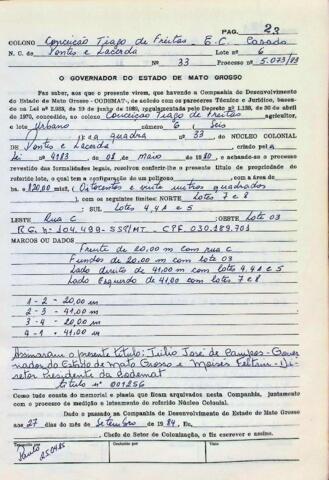 PAG. 23
COLONO Conceição Tiago de Freitas - E.C. Casado
N. C. de Pontes e Lacerda Lote nº 6
Nº 33 Processo nº 5.073/83
O GOVERNADOR DO ESTADO DE MATO GROSSO
Faz saber, aos que o presente virem, que havendo a Companhia de Desenvolvimento
do Estado de Mato Grosso - CODEMAT, de acôrdo com os pareceres Técnico e Jurídico, baseados
na Lei nº 2.925, de 19 de junho de 1969, regulamentada pelo Decreto nº 1.138, de 30 de abril
de 1970, concedido ao colono Conceição Tiago de Freitas agricultor,
o lote Urbano número 6 Seis
da quadra nº 33, DO NÚCLEO COLONIAL
DE Pontes e Lacerda, criado pela
Lei nº 4183 de 08 de maio de 1980, e achando-se o processo
revestido das formalidades legais, resolveu conferir-lhe o presente título de propriedade
do referido lote, a qual tem a configuração de um polígono com a área de
820,00 mts2, (Oitocentos e vinte metros quadrados
), com os seguintes limites: NORTE Lotes 7 e 8
; SUL Lotes 4, 4A e 5
LESTE Rua C ; OESTE Lote 03
R.G. nº 104.499-SSP/MT - CPF. 030.189.701
MARCOS OU DADOS
Frente de 20,00 m com rua C
Fundos de 20,00 m com lote 03
Lado direito de 41,00 m com lotes 4, 4A e 5
Lado Esquerdo de 41,00 com lotes 7 e 8
1 - 2 - 20,00 m
2 - 3 - 41,00 m
3 - 4 - 20,00 m
4 - 1 - 41,00 m
Assinaram o presente título: Julio José de Campos - Gover-
nador do Estado de Mato Grosso e Moisés Feltrin - Di-
retor Presidente da Codemat
título nº 001256
Como tudo consta do memorial e planta que ficam arquivados nesta Companhia, juntamente
com o processo de medição e loteamento do referido Núcleo Colonial.
Dado e passado na Companhia de Desenvolvimento do Estado de Mato Grosso
aos 27 dias do mês de Setembro de 1984, Eu,
, Chefe do Setor de Colonização, o fiz escrever e assino.
25.04.85
Conferido por
Visto